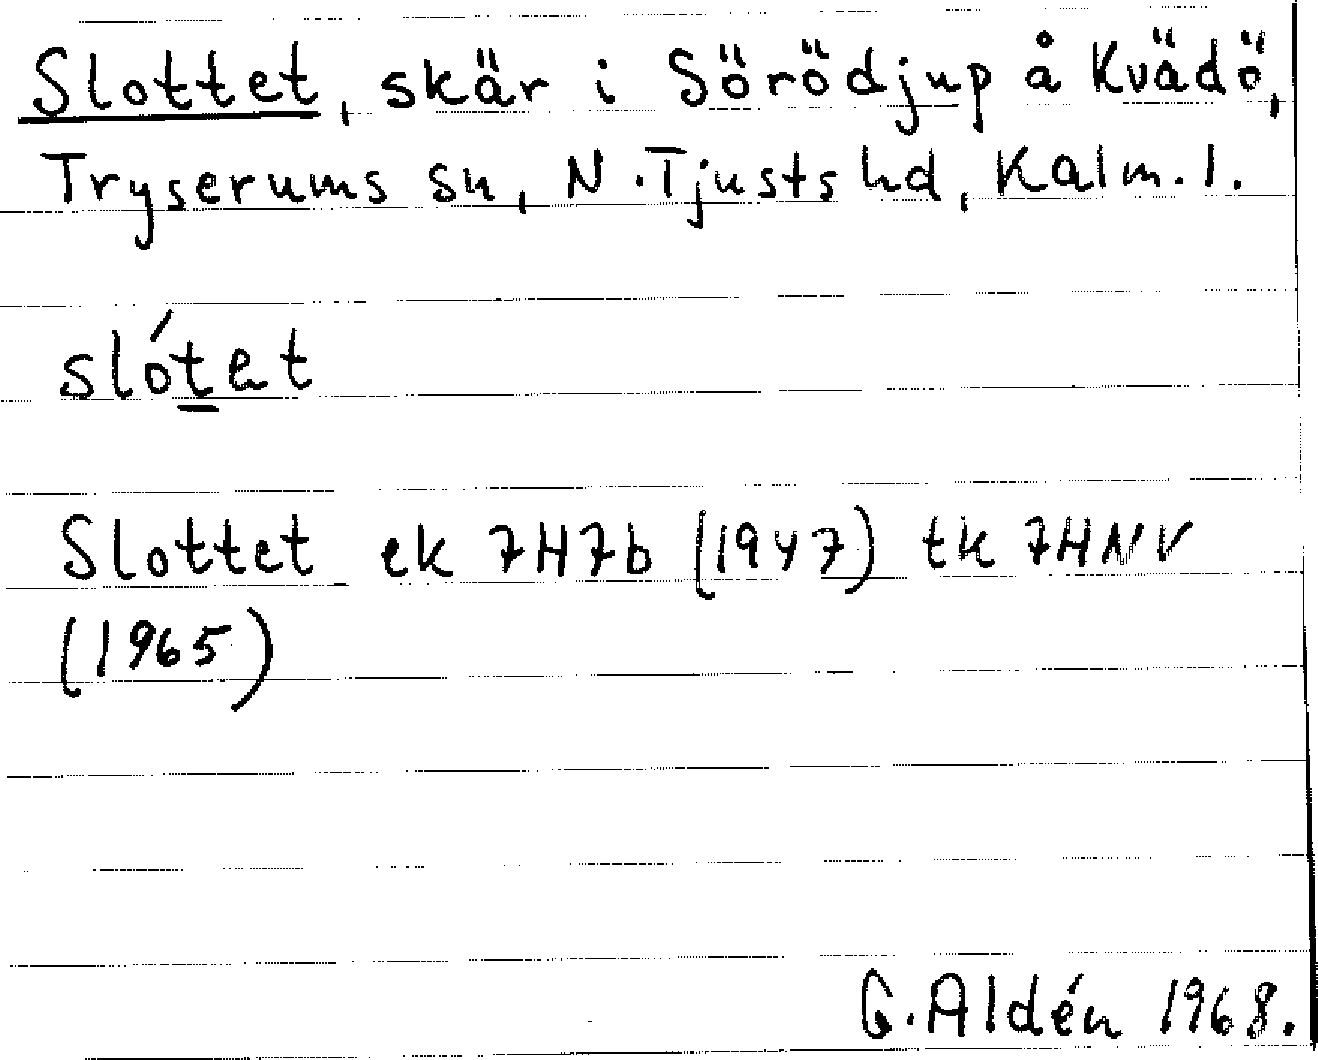 Slottet, skär i Sörödjup å Kvädö,
Tryserums sn, N. Tjusts hd, Kalm. l.
slótet
Slottet ek 7H7b (1947) tk 7HNV
(1965)
G. Aldén 1968.